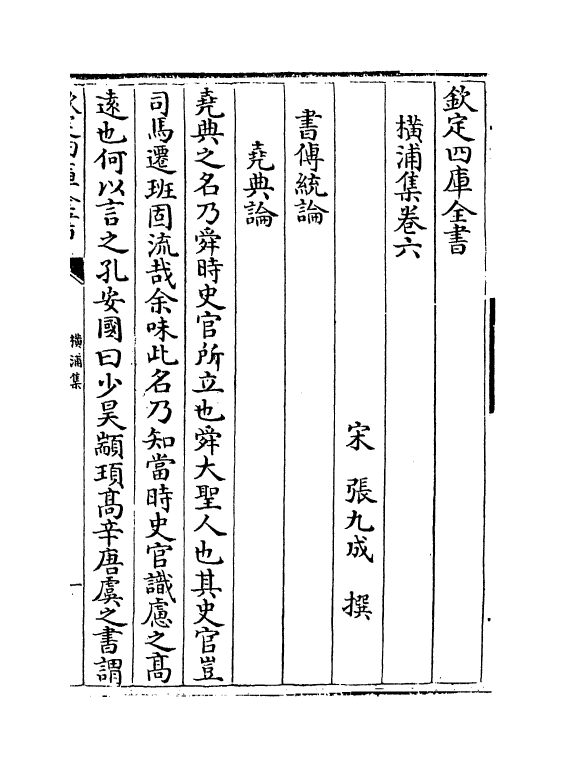 欽定四庫全書
橫浦集卷六
宋 張九成 撰
書傳統論
堯典論
堯典之名乃舜時史官所立也舜大聖人也其史官豈
司馬遷班固流哉余味此名乃知當時史官識慮之髙
逺也何以言之孔安國曰少昊顓頊髙辛唐虞之書謂
欽定四庫全書
橫浦集
一